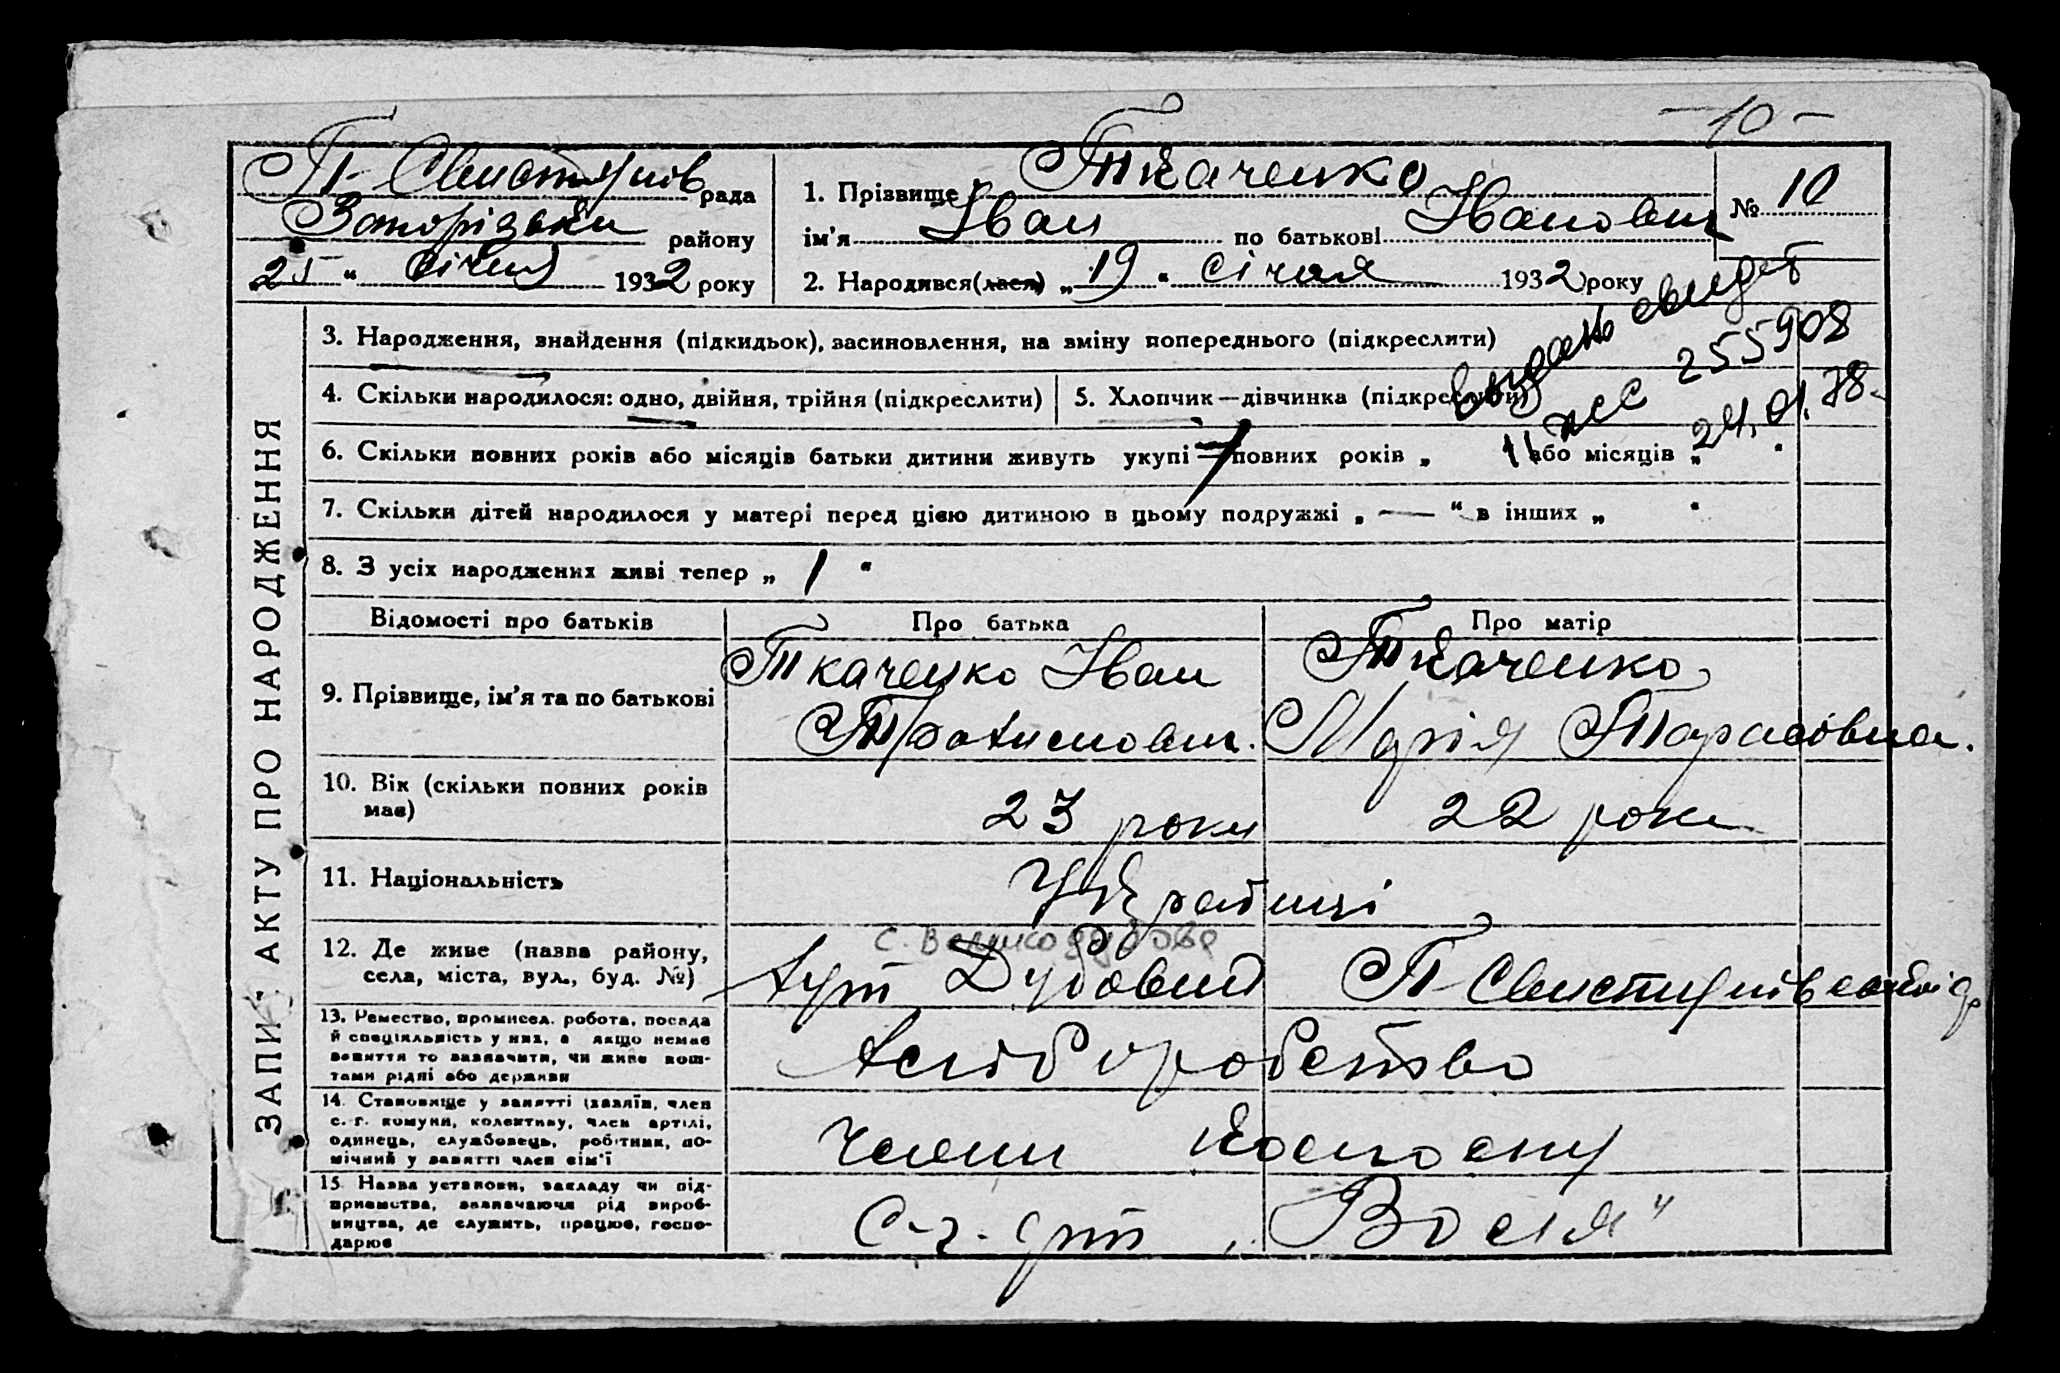 — 10 —
П-Свистунів рада
Запорізьки району
25 " січня 1932 року
1. Прізвище Ткаченко
ім'я Іван по батькові Іванович
2. Народився(лася) „ 19 " січня 1932 року
№ 10
выдано свидет
255908
24.01.78
ЗАПИС АКТУ ПРО НАРОДЖЕННЯ
3. Народження, знайдення (підкидьок), засиновлення, на зміну попереднього (підкреслити)
4. Скільки народилося: одно, двійня, трійня (підкреслити)
5. Хлопчик—дівчинка (підкреслити)
6. Скільки повних років або місяців батьки дитини живуть укупі „ 1 повних років „ 11 або місяців „ "
7. Скільки дітей народилося у матері перед цією дитиною в цьому подружжі „ — " в інших „ "
8. З усіх народжених живі тепер „ 1 "
Відомості про батьків
Про батька
Про матір
9. Прізвище, ім'я та по батькові
Ткаченко Іван
Ткаченко
Марія Тарасівна.
10. Вік (скільки повних років
має)
23 роки
22 роки
11. Національність
Українці
12. Де живе (назва району,
села, міста, вул., буд. №)
с. Великодубове
хут Дубовий П-Свистунівської
13. Ремество, промисел, робота, посада
й спеціяльність у них, а якщо немає
заняття то зазначити, чи живе кош-
тами рідні або держави
хліборобство
14. Становище у занятті (хазяїн, член
с.-г. комуни, колективу, член артілі,
одинець, службовець, робітник, по-
мічний у занятті член сім'ї
члени колгоспу
15. Назва установи, закладу чи під-
приємства, зазначаючи рід вироб-
ництва, де служить, працює, госпо-
дарює
С-г. арт „Воля"